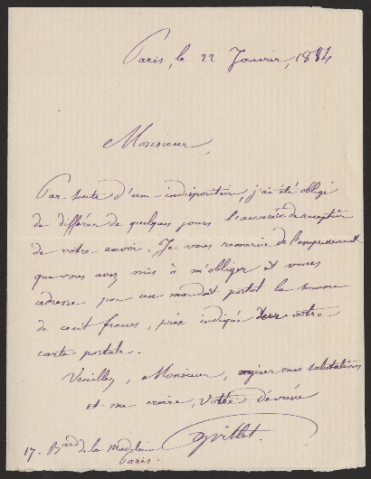 Paris, le 22 Janvier, 1884
Monsieur,
Par suite d'une indisposition, j'ai été obligé
de différer de quelques jours l'accusé de réception
de votre envoi. Je vous remercie de l'empressement
que vous avez mis à m'obliger et vous
adresse par un mandat postal la somme
de cent francs, prix indiqué sur votre
carte postale.
Veuillez, Monsieur, agréer mes salutations
et me croire, votre dévoué
17. Bard de la Madeleine
Paris.